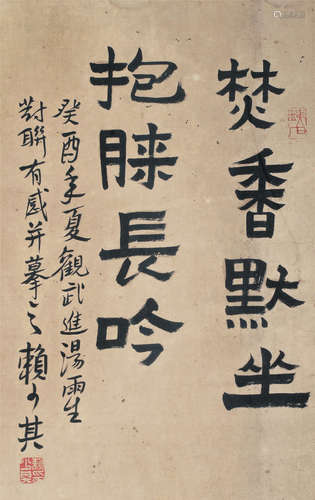 焚香默坐
抱膝長吟
癸酉年夏觀武進湯雨生
對聯有感并摹之賴少其